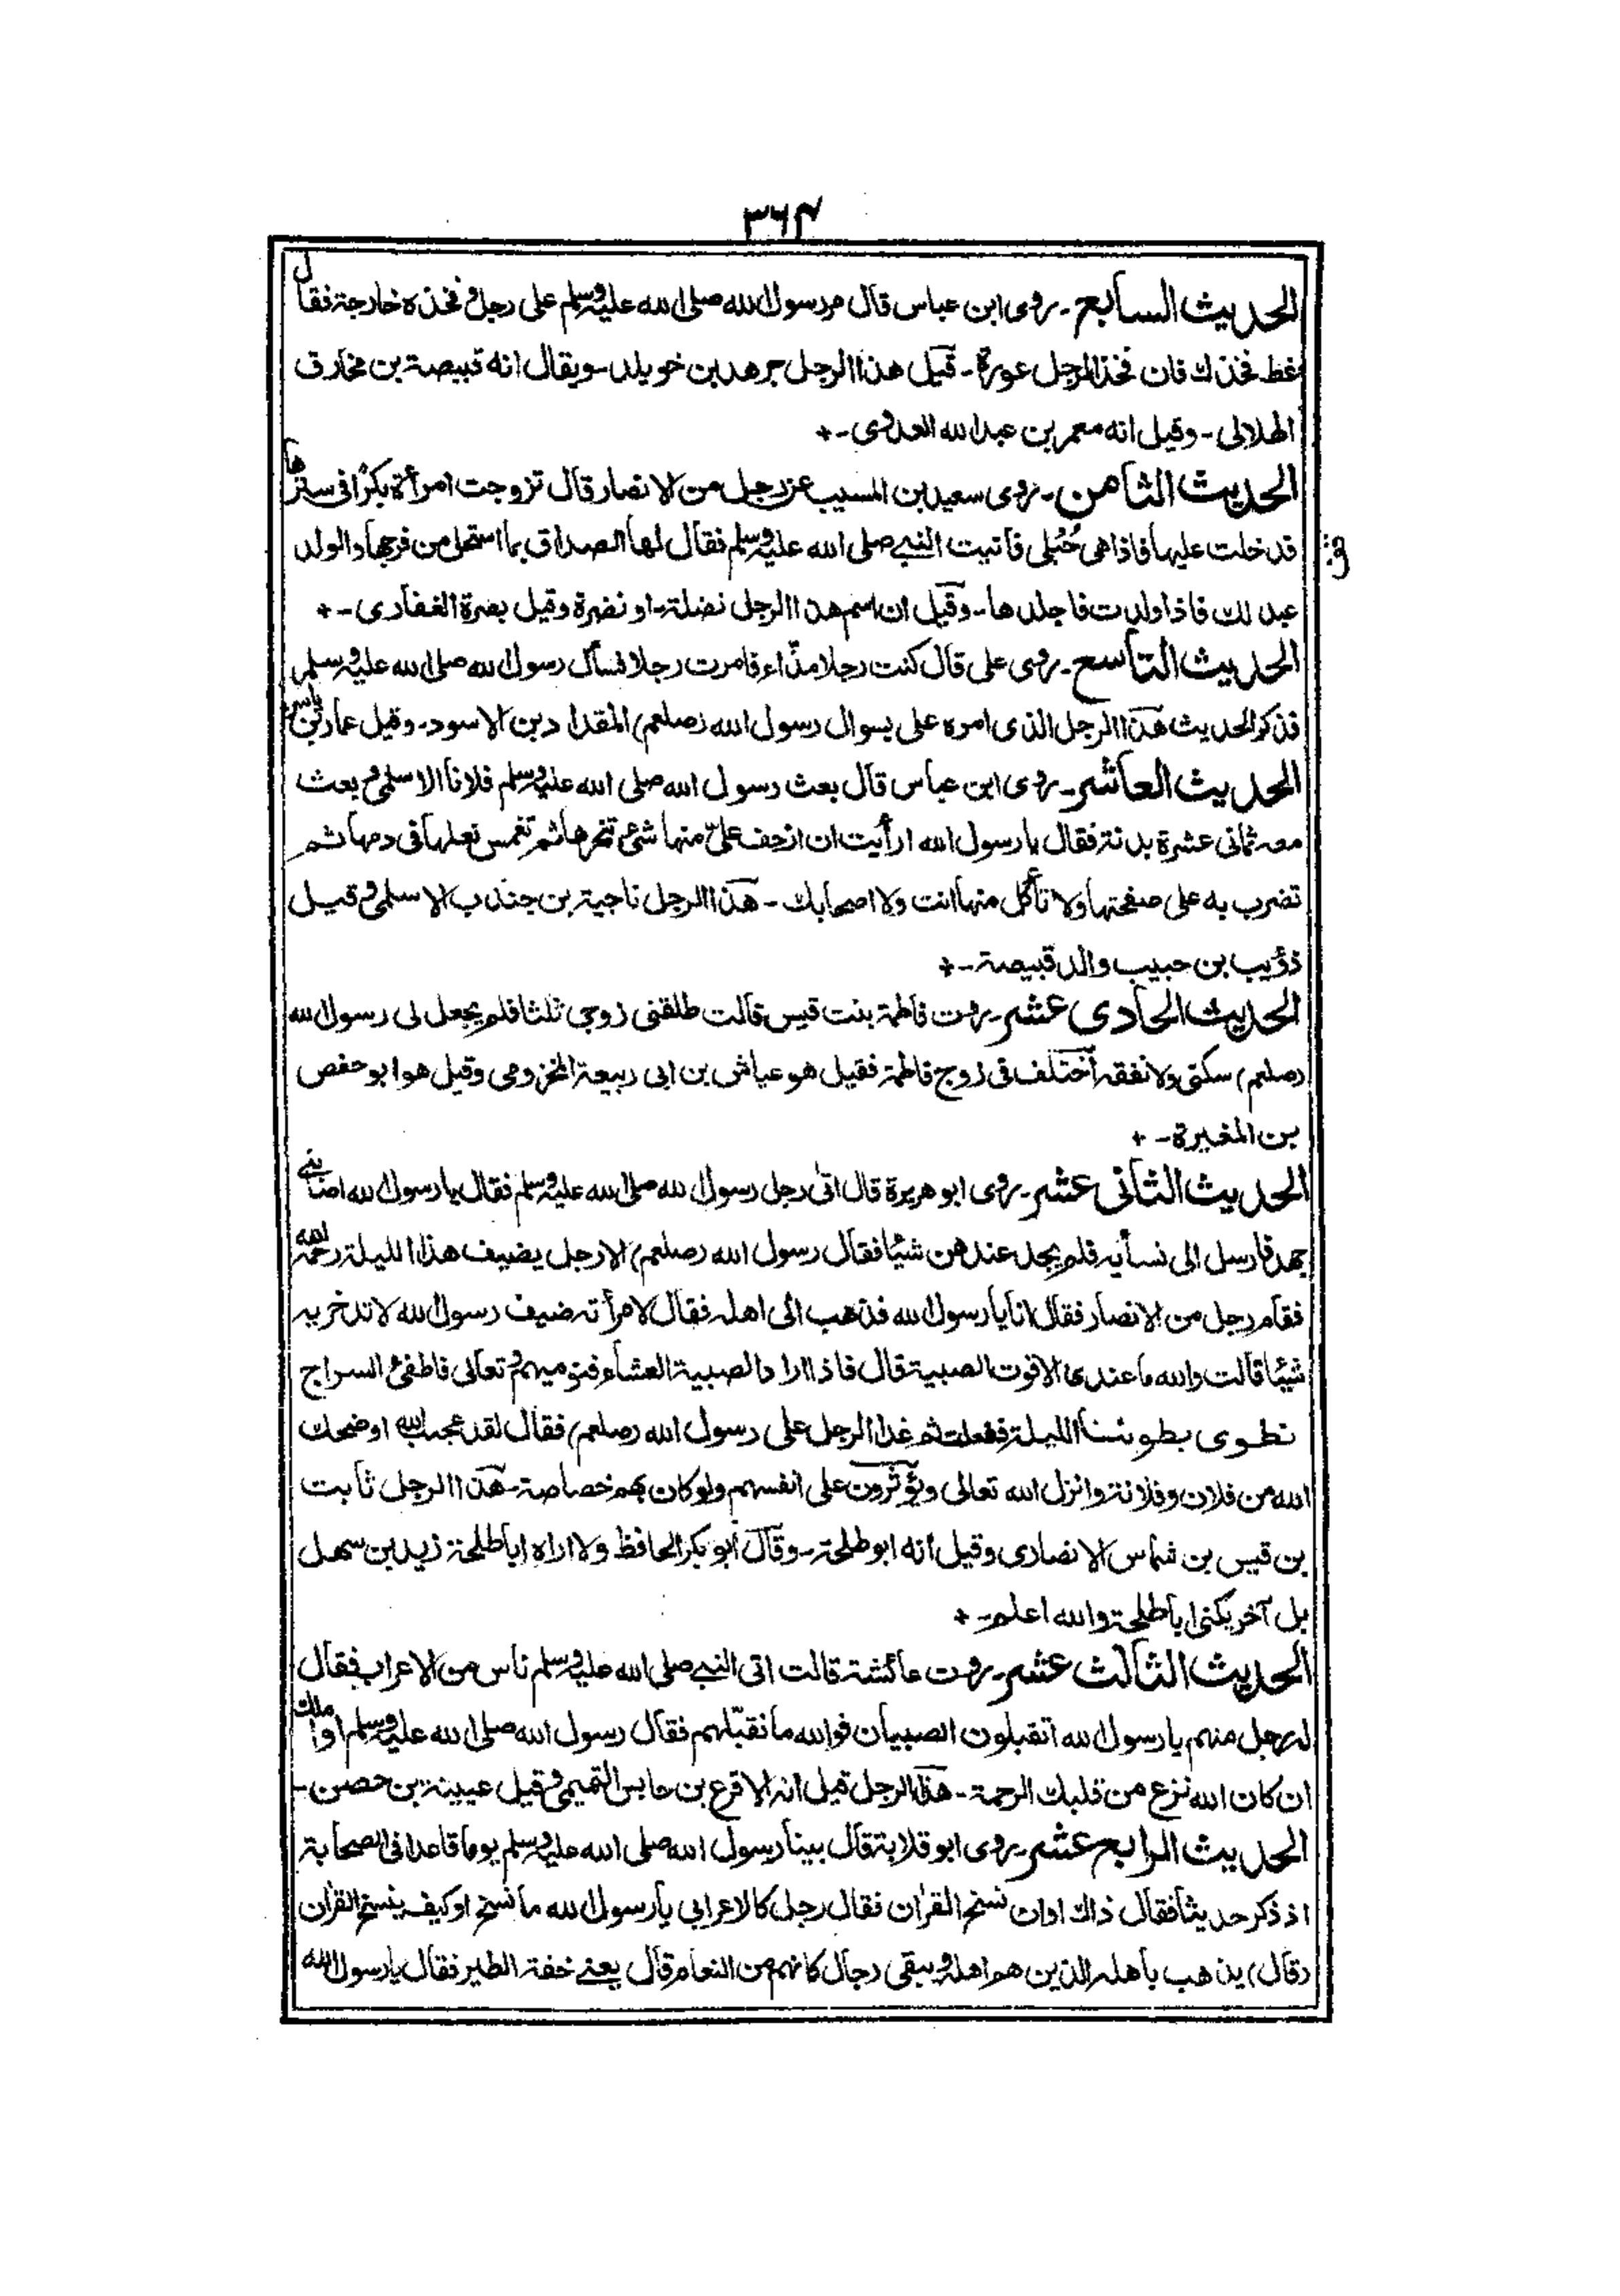 ۳۶۴
الحديث السابع - روى ابن عباس قال مر رسول الله صلى الله عليه وسلم على رجل و فخذه خارجة فقال
غط فخذك فان فخذ الرجل عورة - قيل هذا الرجل جرهد بن خويلد - ويقال انه قبيصة بن مخارق
الهلالى - وقيل انه معمر بن عبد الله العدوى - +
الحديث الثامن - روى سعيد بن المسيب عن رجل من الانصار قال تزوجت امرأة بكرًا فى سترها
قد خلت عليها فاذا هى حُبلى فأتيت النبے صلى الله عليه وسلم فقال لها الصداق بما استحل من فرجها والولد
عبد لك فاذا ولدت فاجلدها - وقيل ان اسم هذا الرجل نضلة - او نضرة وقيل بصرة الغفارى - +
الحديث التاسع - روى على قال كنت رجلا مذّاء فامرت رجلا فسأل رسول الله صلى الله عليه وسلم
فذكر الحديث هذا الرجل الذى امره على بسوال رسول الله (صلعم) المقداد بن الاسود - وقيل عمار بن ياسر
الحديث العاشر - روى ابن عباس قال بعث رسول الله صلى الله عليه وسلم فلانا الاسلمى وبعث
معه ثمانى عشرة بدنة فقال يا رسول الله ارأيت ان ازحف علىّ منها شئ تنحرها ثم تغمس نعلها فى دمها ثم
تضرب به على صفحتها ولا تأكل منها انت ولا اصحابك - هذا الرجل ناجية بن جندب الاسلمى وقيل
ذؤيب بن حبيب والد قبيصة - +
الحديث الحادى عشر - روت فاطمة بنت قيس قالت طلقنى زوجى ثلثا فلم يجعل لى رسول الله
(صلعم) سكنى ولا نفقه اختلف فى زوج فاطمة فقيل هو عياش بن ابى ربيعة المخزومى وقيل هو ابو حفص
بن المغيرة - +
الحديث الثانى عشر - روى ابو هريرة قال اتى رجل رسول الله صلى الله عليه وسلم فقال يا رسول الله اصابنے
جهد فارسل الى نسأيه فلم يجد عندهن شيئا فقال رسول الله (صلعم) الا رجل يضيف هذا الليلة رحمه الله
فقام رجل من الانصار فقال انا يا رسول الله فذهب الى اهله فقال لامرأته ضيف رسول الله لا تدخريه
شيئا قالت والله ما عندى الا قوت الصبية قال فاذا اراد الصبية العشاء فنوميهم و تعالى فاطفئ السراج
نطوى بطوننا الليلة ففعلت ثم غدا الرجل على رسول الله (صلعم) فقال لقد عجب الله او ضحك
الله من فلان و فلانة وانزل الله تعالى ويؤثرون على انفسهم ولو كان بهم خصاصة - هذا الرجل ثابت
بن قيس بن شماس الانصارى وقيل انه ابو طلحة - وقال ابو بكر الحافظ ولا اراه اباطلحة زيد بن سهل
بل آخر يكنى اباطلحة والله اعلم - +
الحديث الثالث عشر - روت عائشة قالت اتى النبے صلى الله عليه وسلم ناس من الاعراب فقال
له رجل منهم يا رسول الله اتقبلون الصبيان فوالله ما نقبّلهم فقال رسول الله صلى الله عليه وسلم او املك
ان كان الله نزع من قلبك الرحمة - هذا الرجل قيل انه الاقرع بن حابس التميمى و قيل عيينة بن حصن -
الحديث الرابع عشر - روى ابو قلابة قال بينا رسول الله صلى الله عليه وسلم يوما قاعدا فى الصحابة
اذ ذكر حديثا فقال ذاك اوان نسخ القرآن فقال رجل كالاعرابى يا رسول الله ما نسخ او كيف ينسخ القرآن
(قال) يذهب بأهله الذين هم اهله ويبقى رجال كانهم من النعام قال يعنے خفة الطير فقال يا رسول الله